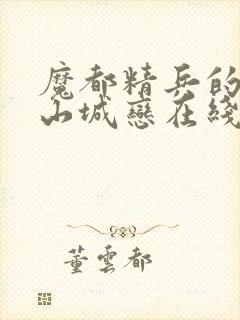 魔都精兵的
山城戀在綫
董雲都